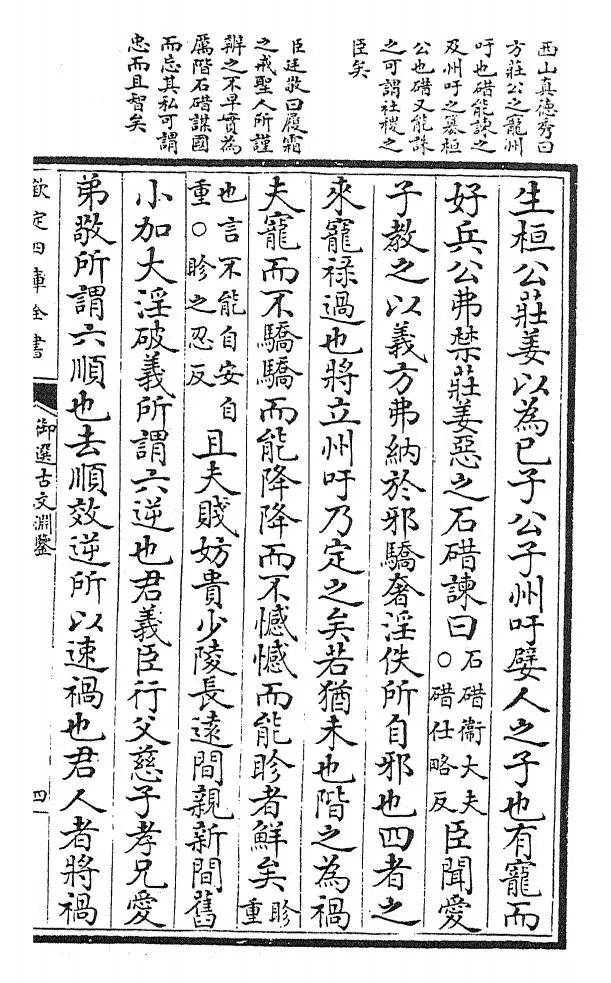 西山真德秀曰
方莊公之寵州
吁也碏能諫之
及州吁之篡桓
公也碏又能誅
之可謂社稷之
臣矣
臣廷敬曰履霜
之戒聖人所謹
辨之不早實為
厲階石碏謀國
而忘其私可謂
忠而且智矣
生桓公莊姜以為己子公子州吁嬖人之子也有寵而
好兵公弗禁莊姜惡之石碏諫曰石碏衞大夫○碏仕略反臣聞愛
子教之以義方弗納於邪驕奢淫佚所自邪也四者之
來寵祿過也將立州吁乃定之矣若猶未也階之為禍
夫寵而不驕驕而能降降而不憾憾而能眕者鮮矣眕重
也言不能自安自重○眕之忍反且夫賤妨貴少陵長遠間親新間舊
小加大淫破義所謂六逆也君義臣行父慈子孝兄愛
弟敬所謂六順也去順效逆所以速禍也君人者將禍
欽定四庫全書
御選古文淵鑒
四